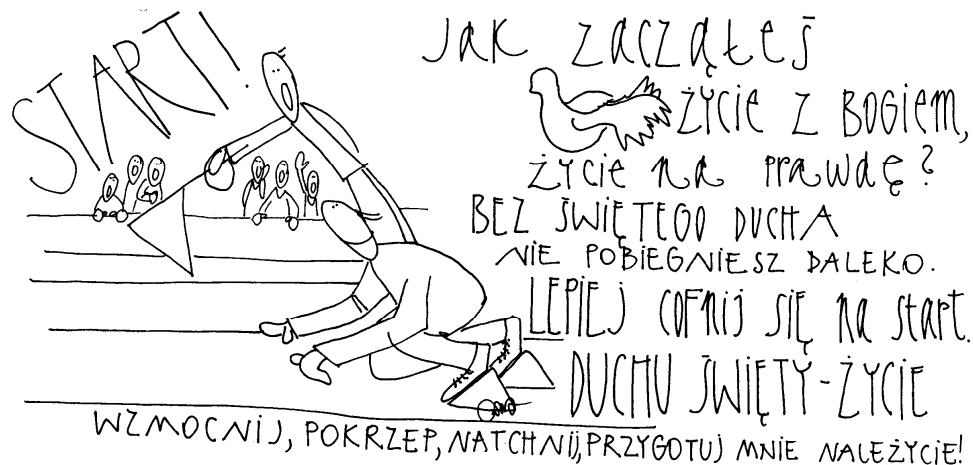 START!
Jak ZACZĄŁEŚ
ŻYCIE Z BOGIEM,
ŻYCIE NA PRAWDĘ?
BEZ ŚWIĘTEGO DUCHA
NIE POBIEGNIESZ DALEKO.
LEPIEJ COFNIJ SIĘ NA START.
DUCHU ŚWIĘTY-ŻYCIE
WZMOCNIJ, POKRZEP, NATCHNIJ, PRZYGOTUJ MNIE NALEŻYCIE!